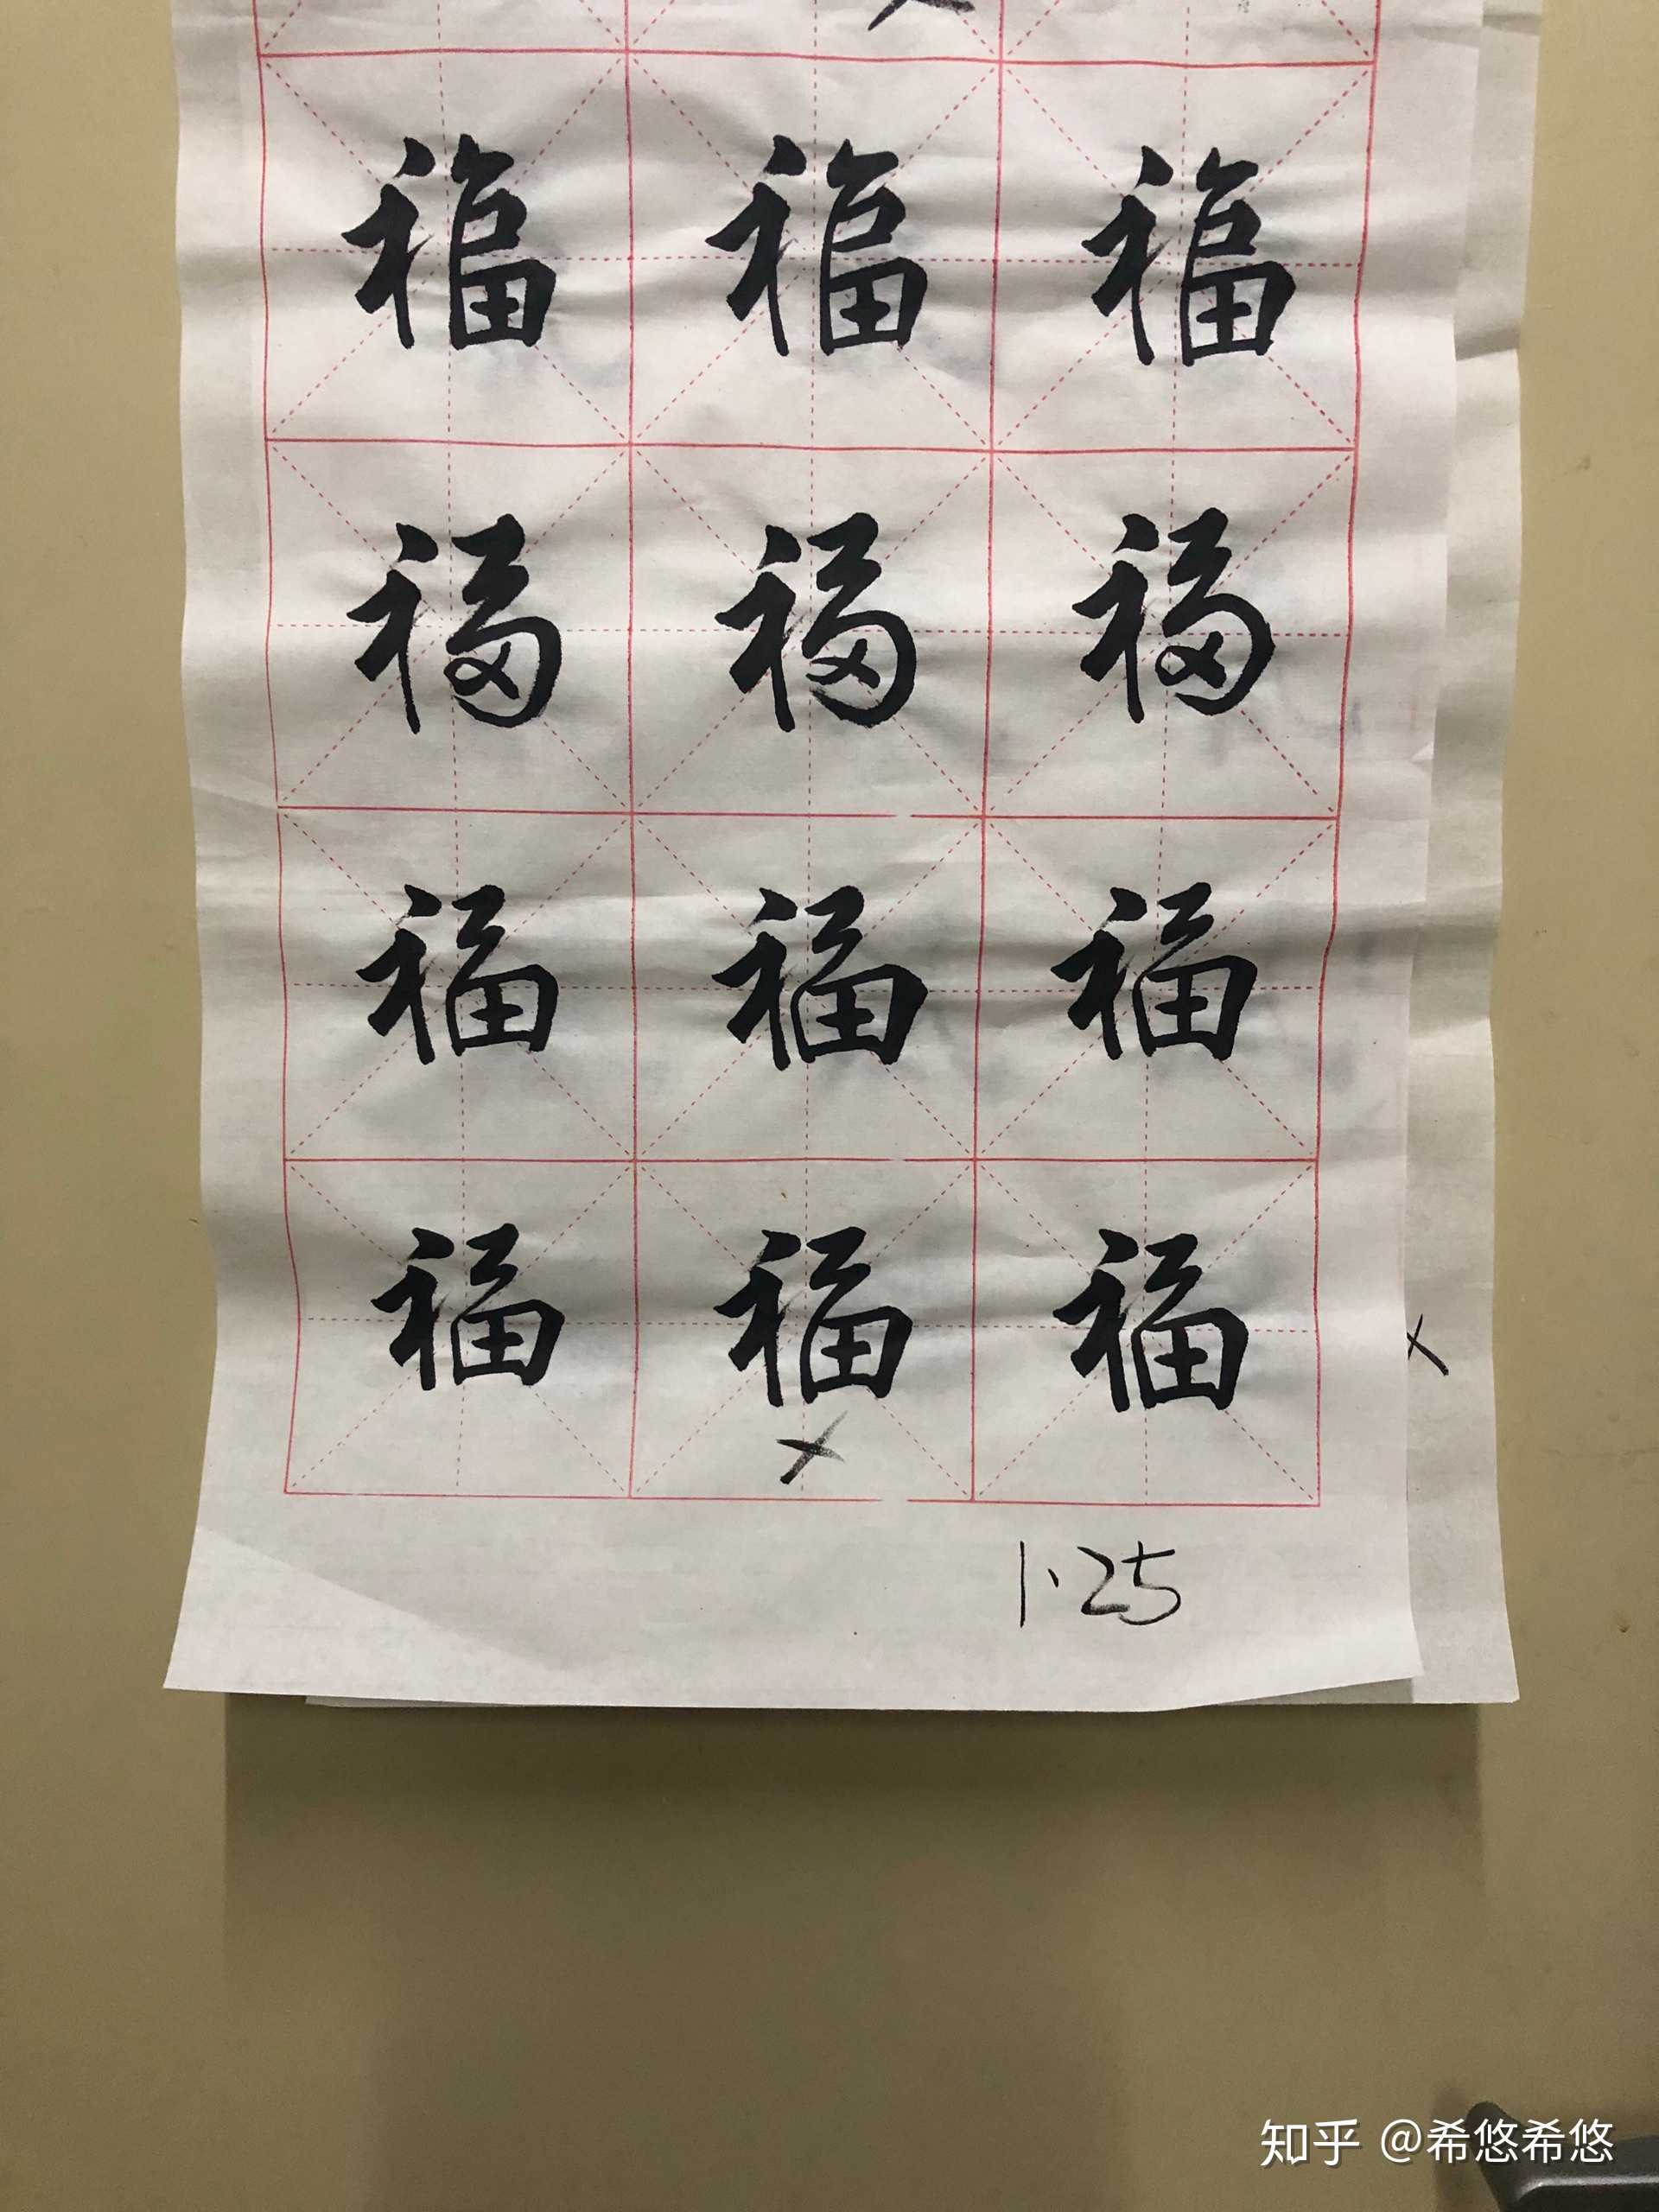 福 福 福
福 福 福
福 福 福
福 福 福
1.25
知乎 @希悠希悠